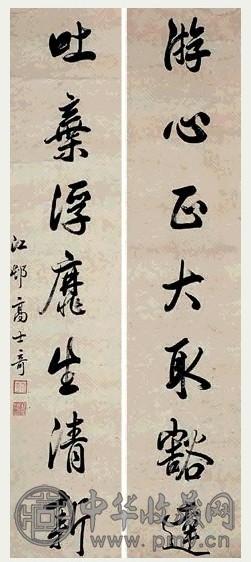 游心正大取豁達
吐棄浮靡生清新
江邨高士奇
中华收藏网